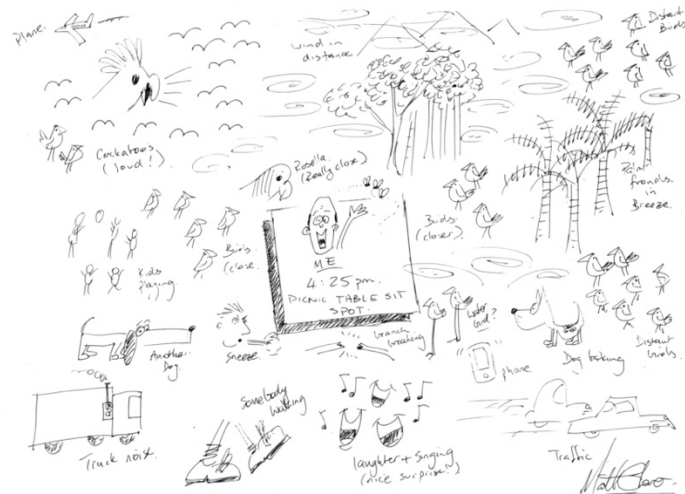 Plane.
wind in
distance
Distant
Birds
Cockatoos
(loud!)
Rosella
(Really close)
Palm
fronds
in
Breeze.
Kids
playing.
Birds
(close.
ME
4:25 pm.
PICNIC TABLE SIT
SPOT.
Birds
(closer).
water
bird?
Another
Dog
Sneeze.
branch
breaking
phone
Dog barking
Distant
birds
Truck noise.
Somebody
walking
laughter + singing
(nice surprise!)
Traffic